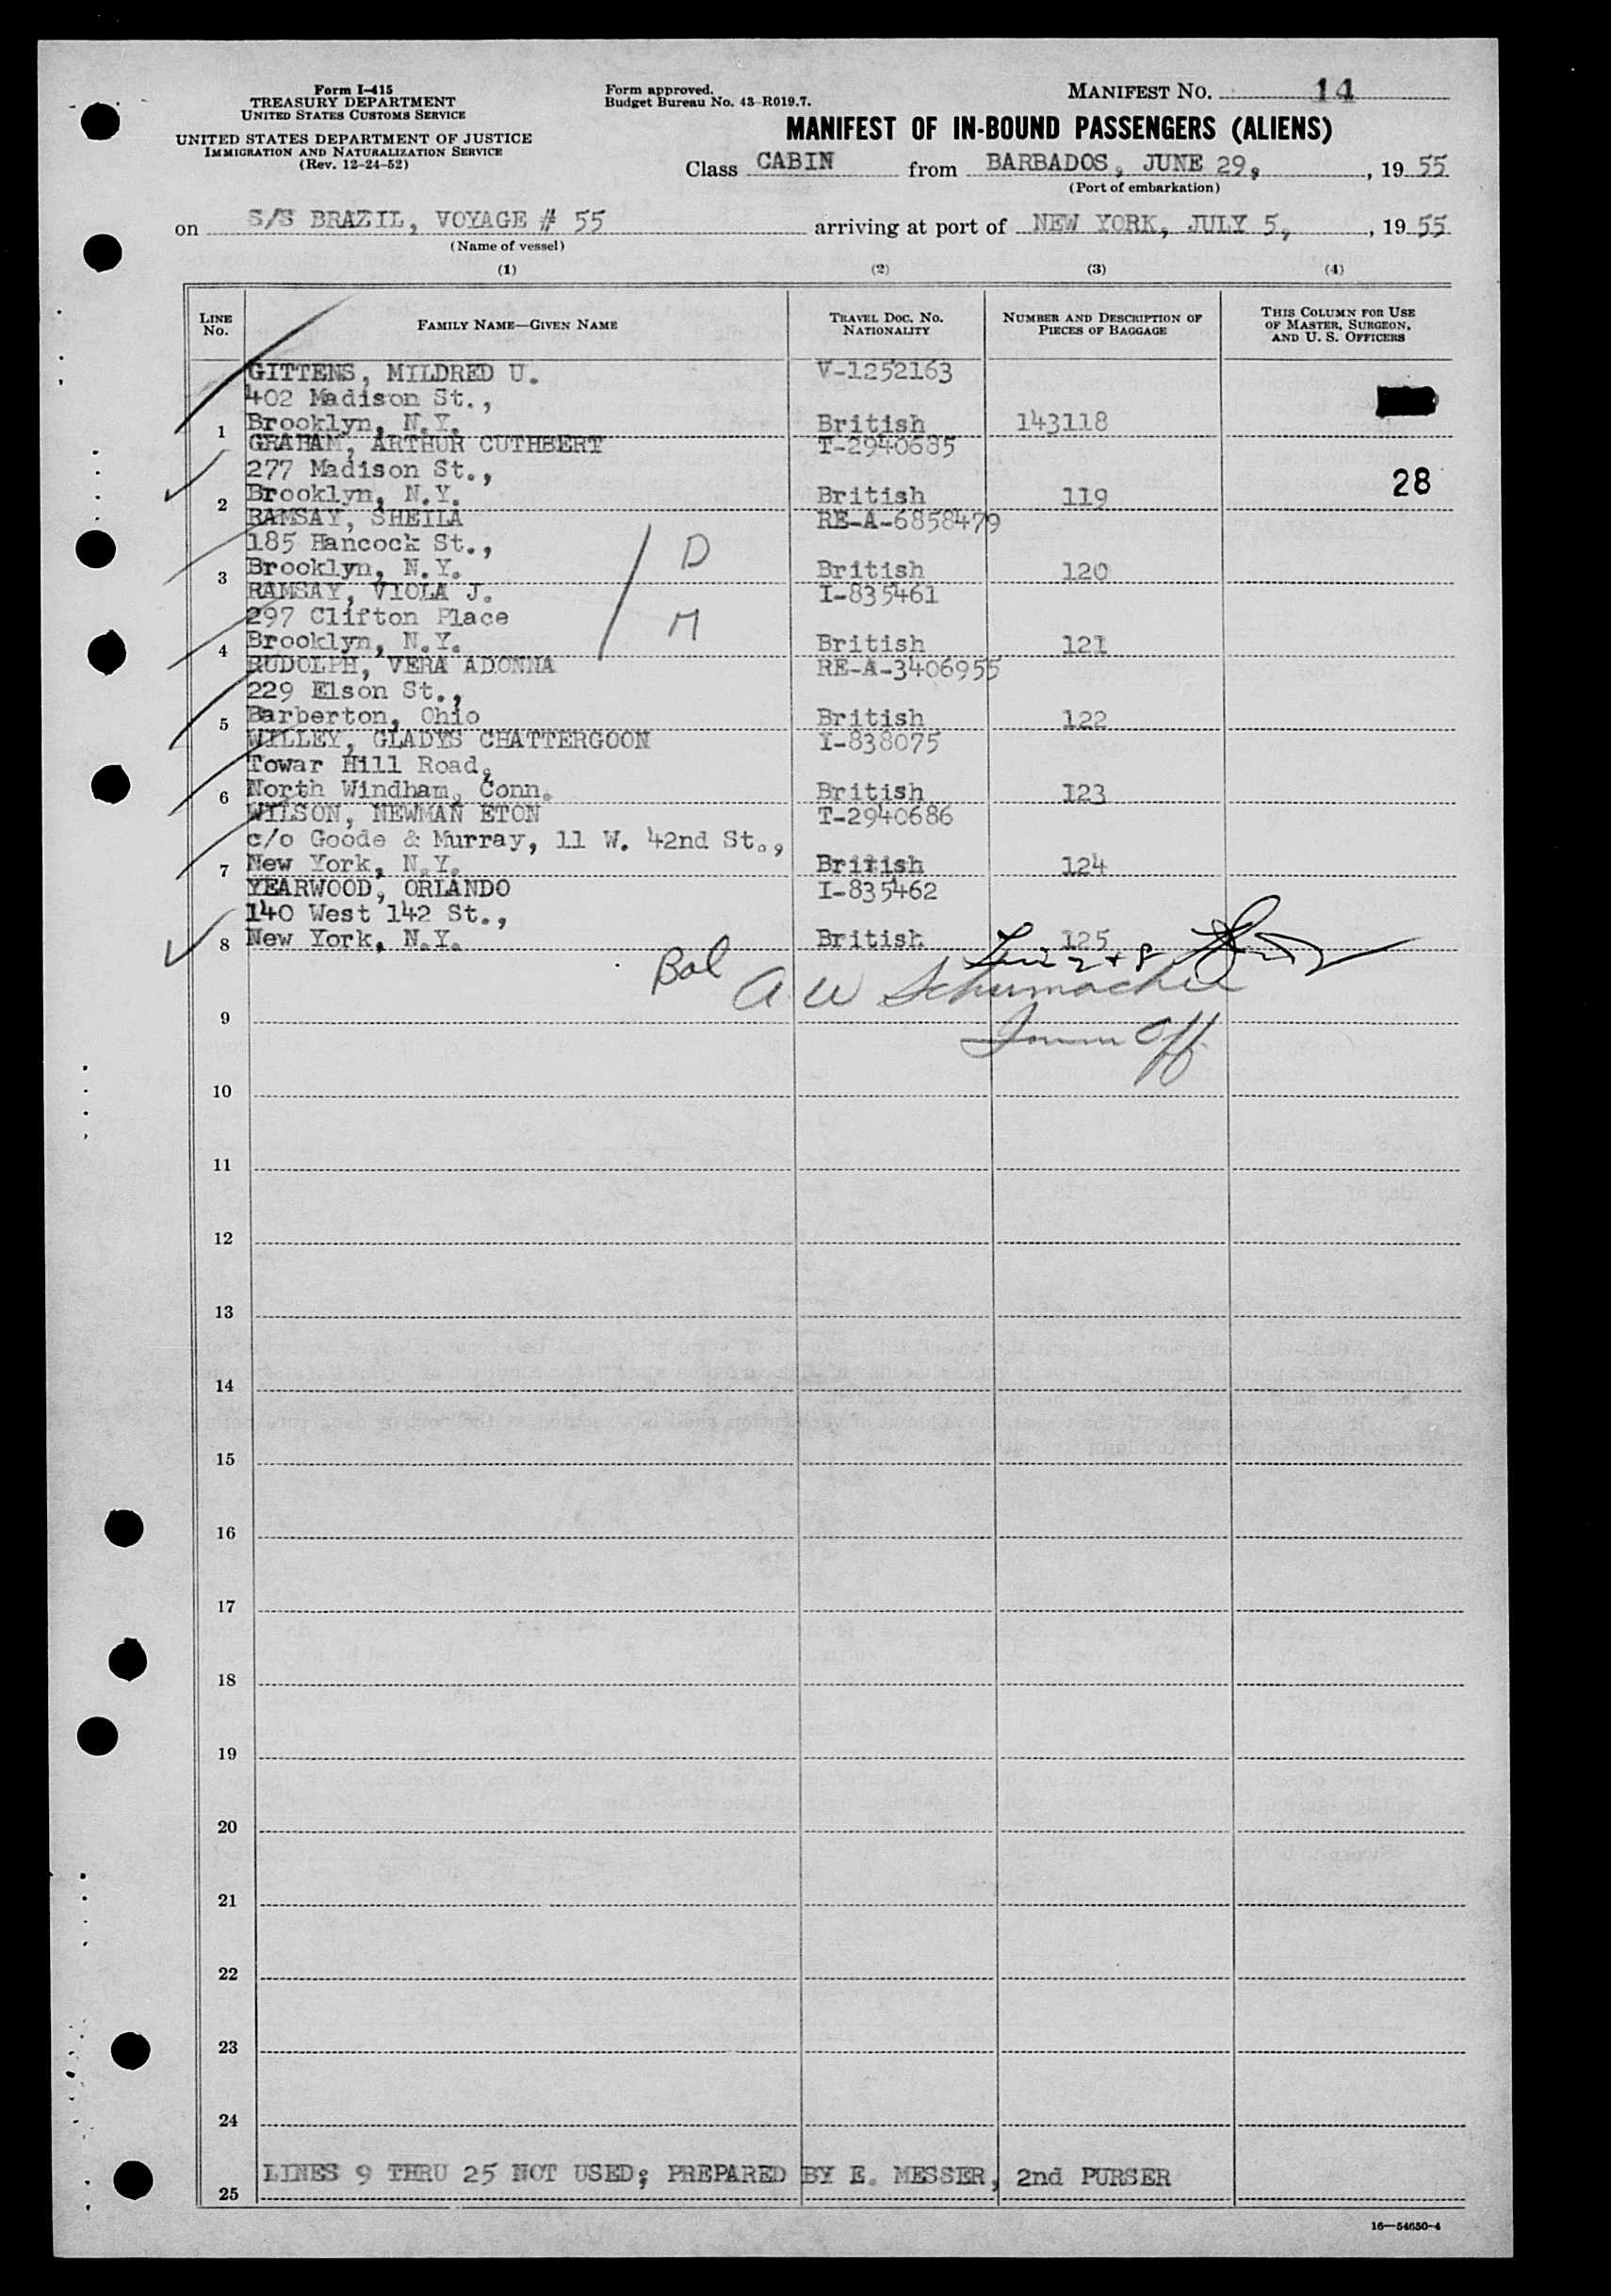 Form I-415
TREASURY DEPARTMENT
UNITED STATES CUSTOMS SERVICE
UNITED STATES DEPARTMENT OF JUSTICE
IMMIGRATION AND NATURALIZATION SERVICE
(Rev. 12-24-52)
Form approved.
Budget Bureau No. 43-R019.7.
MANIFEST NO. 14
MANIFEST OF IN-BOUND PASSENGERS (ALIENS)
Class CABIN from BARBADOS, JUNE 29, , 1955
(Port of embarkation)
on S/S BRAZIL, VOYAGE # 55 arriving at port of NEW YORK, JULY 5, , 1955
(Name of vessel)
(1) (2) (3) (4)
LINE NO. FAMILY NAME—GIVEN NAME TRAVEL DOC. NO. NATIONALITY NUMBER AND DESCRIPTION OF PIECES OF BAGGAGE THIS COLUMN FOR USE OF MASTER, SURGEON, AND U. S. OFFICERS
GITTENS, MILDRED U. V-1252163
402 Madison St.,
1 Brooklyn, N.Y. British 143118
GRAHAM, ARTHUR CUTHBERT T-2940685
277 Madison St., 28
2 Brooklyn, N.Y. British 119
RAMSAY, SHEILA RE-A-6858479
185 Hancock St., D
3 Brooklyn, N.Y. British 120
RAMSAY, VIOLA J. I-835461
297 Clifton Place M
4 Brooklyn, N.Y. British 121
RUDOLPH, VERA ADONNA RE-A-3406955
229 Elson St.,
5 Barberton, Ohio British 122
WILLEY, GLADYS CHATTERGOON I-838075
Towar Hill Road,
6 North Windham, Conn. British 123
WILSON, NEWMAN ETON T-2940686
c/o Goode & Murray, 11 W. 42nd St.,
7 New York, N.Y. British 124
YEARWOOD, ORLANDO I-835462
140 West 142 St.,
8 New York, N.Y. British 125
Bal 2 + 8
A W Schumacher
9
Imm Off
10
11
12
13
14
15
16
17
18
19
20
21
22
23
24
LINES 9 THRU 25 NOT USED; PREPARED BY E. MESSER, 2nd PURSER
25
16—54650-4